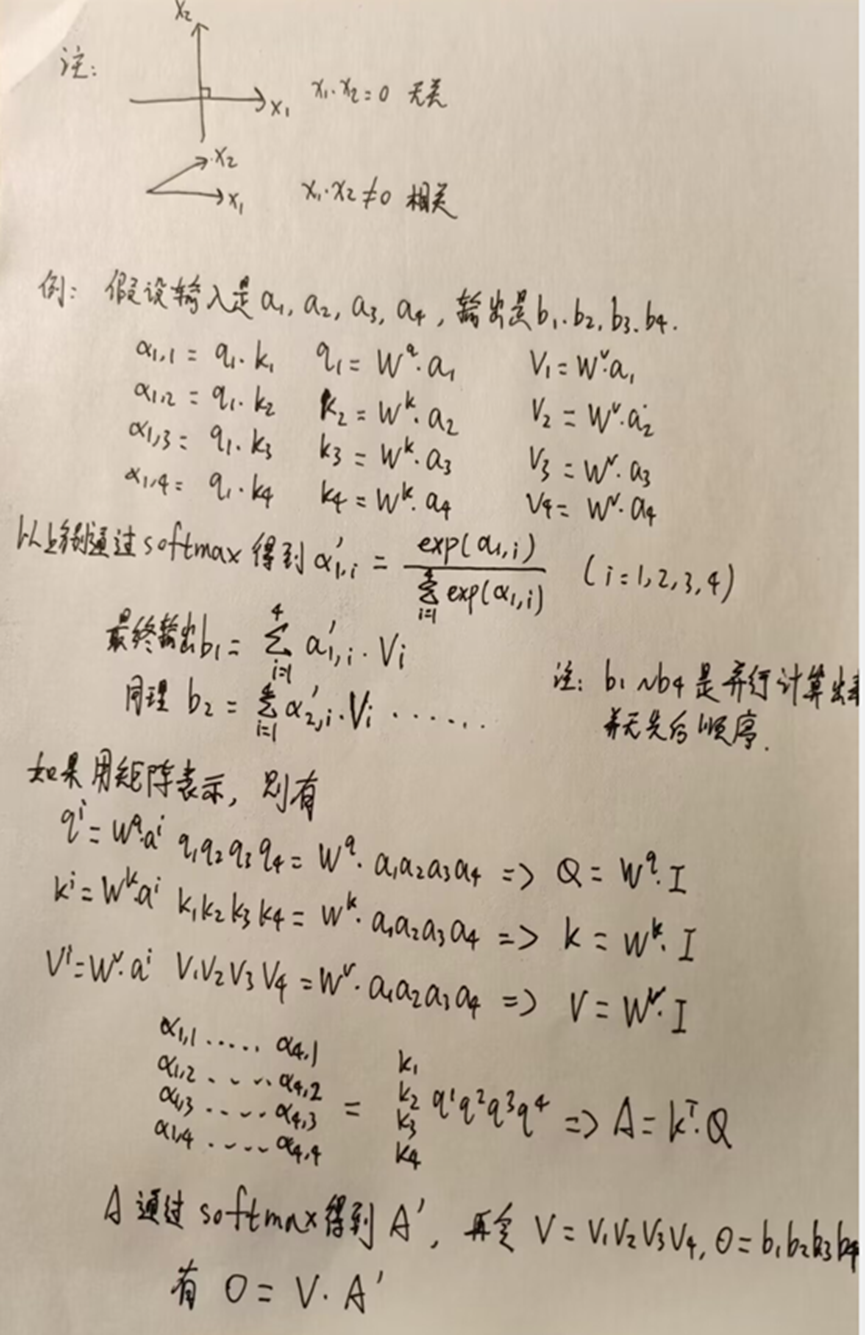 注:
x₂
x₁ x₁·x₂=0 无关
x₂
x₁ x₁·x₂≠0 相关
例: 假设输入是a₁, a₂, a₃, a₄, 输出是b₁.b₂,b₃.b₄.
α₁,₁ = q₁·k₁ q₁ = W^q·a₁ V₁=W^v·a₁
α₁,₂ = q₁·k₂ k₂ = W^k·a₂ V₂ = W^v·a₂
α₁,₃ = q₁·k₃ k₃ = W^k·a₃ V₃ = W^v·a₃
α₁,₄ = q₁·k₄ k₄ = W^k·a₄ V₄ = W^v·a₄
以上分别通过softmax得到α′₁,ᵢ = exp(α₁,ᵢ) / Σ⁴ᵢ₌₁ exp(α₁,ᵢ) (i=1,2,3,4)
最终输出b₁ = Σ⁴ᵢ₌₁ a′₁,ᵢ·Vᵢ
注: b₁~b₄是并行计算出来
同理 b₂ = Σ⁴ᵢ₌₁ α′₂,ᵢ·Vᵢ ......
并无先后顺序.
如果用矩阵表示, 则有
qⁱ=W^q·aⁱ q₁q₂q₃q₄ = W^q·a₁a₂a₃a₄ => Q = W^q·I
kⁱ=W^k·aⁱ k₁k₂k₃k₄ = W^k·a₁a₂a₃a₄ => k = W^k·I
Vⁱ=W^v·aⁱ V₁V₂V₃V₄ = W^v·a₁a₂a₃a₄ => V = W^v·I
α₁,₁ ..... α₄,₁ k₁
α₁,₂ .... α₄,₂ k₂
α₁,₃ ..... α₄,₃ = k₃ q¹q²q³q⁴ => A = k^T·Q
α₁,₄ ..... α₄,₄ k₄
A通过softmax得到A′, 再令 V=V₁V₂V₃V₄, O=b₁b₂b₃b₄
有 O = V·A′